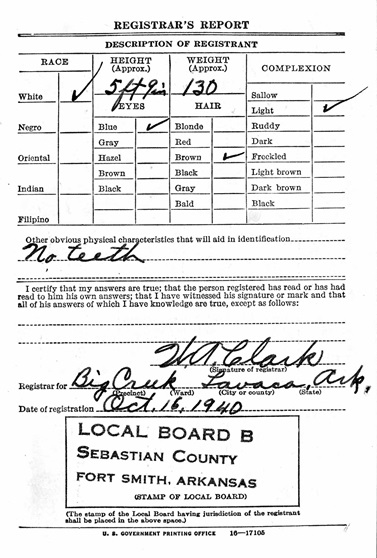 REGISTRAR'S REPORT
DESCRIPTION OF REGISTRANT
RACE
HEIGHT
(Approx.)
WEIGHT
(Approx.)
COMPLEXION
5 ft 9 in
130
White ✓
EYES
HAIR
Sallow
Light ✓
Negro
Blue ✓
Blonde
Ruddy
Gray
Red
Dark
Oriental
Hazel
Brown ✓
Freckled
Brown
Black
Light brown
Indian
Black
Gray
Dark brown
Bald
Black
Filipino
Other obvious physical characteristics that will aid in identification
No teeth
I certify that my answers are true; that the person registered has read or has had
read to him his own answers; that I have witnessed his signature or mark and that
all of his answers of which I have knowledge are true, except as follows:
Clark
(Signature of registrar)
Registrar for Big Creek Lavaca, Ark.
(Precinct) (Ward) (City or county) (State)
Date of registration Oct. 16, 1940
LOCAL BOARD B
SEBASTIAN COUNTY
FORT SMITH, ARKANSAS
(STAMP OF LOCAL BOARD)
(The stamp of the Local Board having jurisdiction of the registrant
shall be placed in the above space.)
U. S. GOVERNMENT PRINTING OFFICE 16—17105